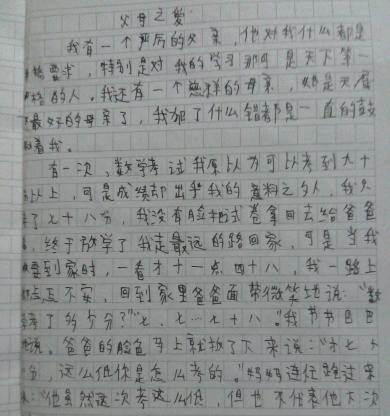 父母之爱
我有一个严厉的父亲，他对我什么都是
格要求，特别是对我的学习那可是天下第一
格的人。我还有一个慈祥的母亲，她是天底
最好的母亲了，我犯了什么错都是一直的鼓
着我。
有一次，数学考试我原以为可以考到九十
以上，可是成绩却出乎我的意料之外，我只
了七十八分，我没有脸把试卷拿回去给爸爸
，终于放学了我走最远的路回家，可是当我
要到家时，一看才十一点四十八，我一路上
忐忑不安，回到家里爸爸面带微笑地说：“数
考了多少分？”“七、七…七十八。”我节节巴巴
说。爸爸的脸色马上就扳了下来说：“才七
分，这么低你是怎么考的。”妈妈连忙跑过来
：“他虽然这次考这么低，但也不代表他下次